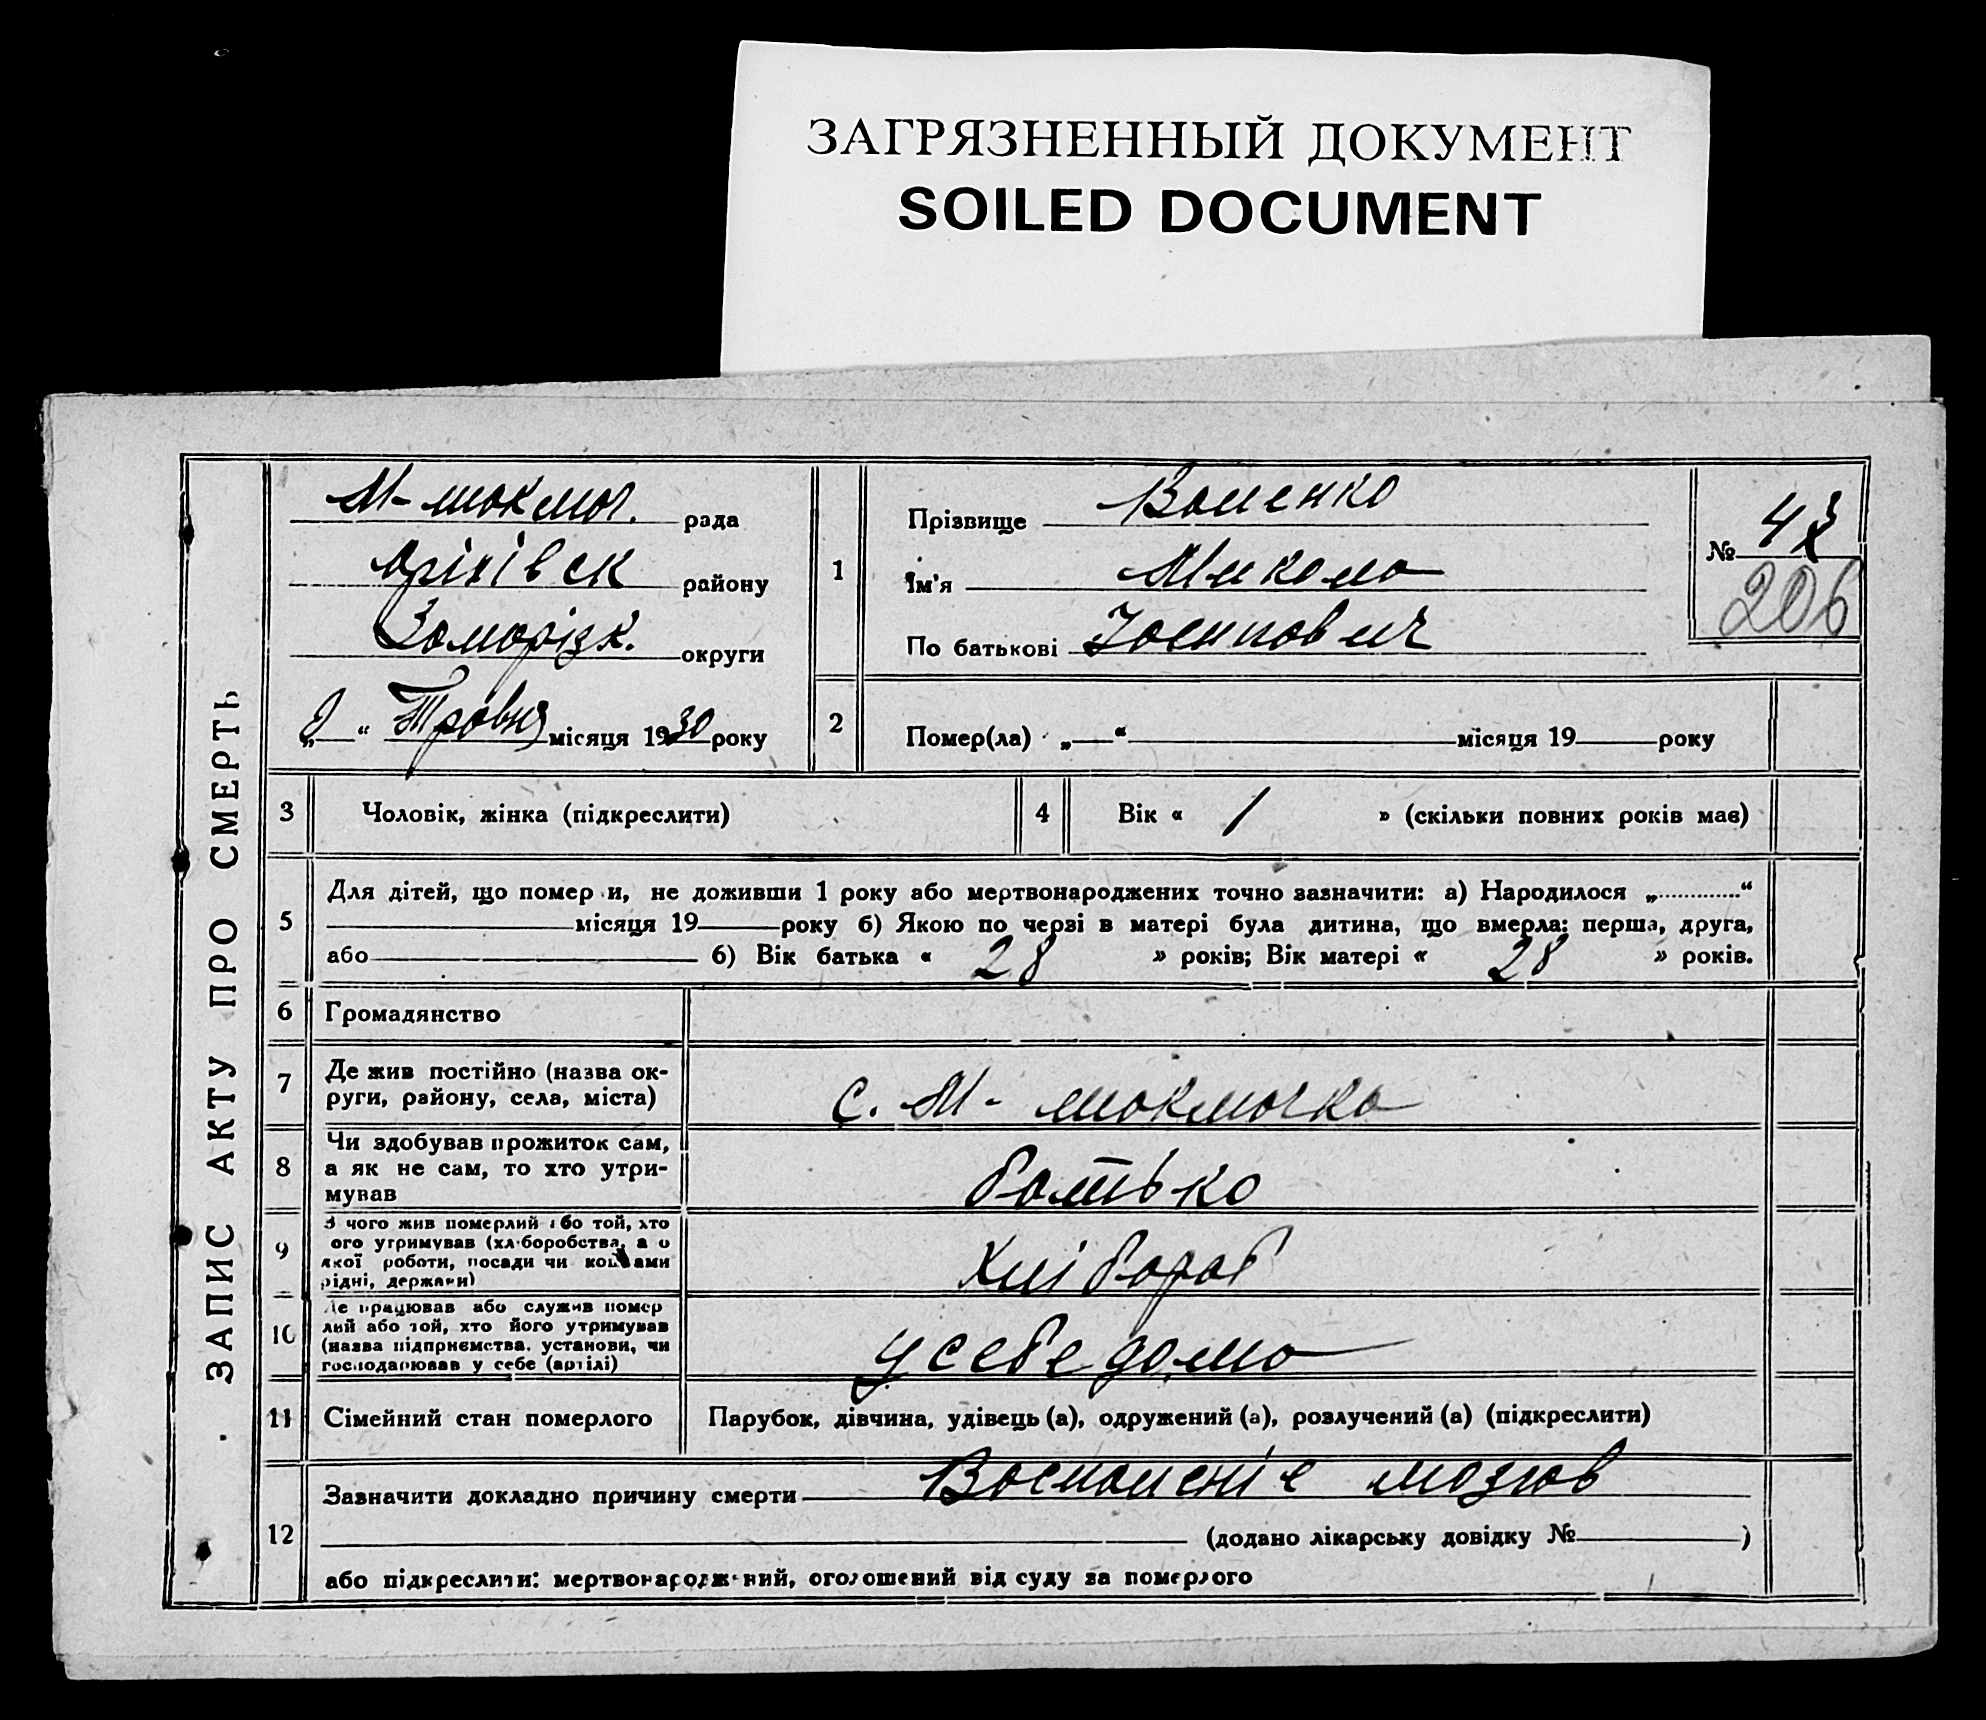 ЗАГРЯЗНЕННЫЙ ДОКУМЕНТ
SOILED DOCUMENT
ЗАПИС АКТУ ПРО СМЕРТЬ
М-токмоч. рада
Оріхівськ району
Запоріжк. округи
„ “ Травня місяця 1930 року
1
Прізвище
Ім'я Микола
По батькові Йосипович
№ 43
206
2 Помер(ла) „ “ місяця 19 року
3 Чоловік, жінка (підкреслити)
4 Вік « 1 » (скільки повних років мав)
5
Для дітей, що померли, не доживши 1 року або мертвонароджених точно зазначити: а) Народилося „ “
місяця 19 року б) Якою по черзі в матері була дитина, що вмерла: перша, друга,
або б) Вік батька « 28 » років; Вік матері « 28 » років.
6 Громадянство
7 Де жив постійно (назва ок-
руги, району, села, міста)
с. М-токмачка
8 Чи здобував прожиток сам,
а як не сам, то хто утри-
мував
батько
9 З чого жив померлий або той, хто
його утримував (хліборобства, а о
якої роботи, посади чи коштами
рідні, держави)
Хлібороб
10 Де працював або служив помер
лий або той, хто його утримував
(назва підприємства, установи, чи
господарював у себе (артілі)
у себе дома
11 Сімейний стан померлого
Парубок, дівчина, удівець (а), одружений (а), розлучений (а) (підкреслити)
12
Зазначити докладно причину смерти Воспаленіе мозгов
(додано лікарську довідку № )
або підкреслити: мертвонароджений, оголошений від суду за померлого